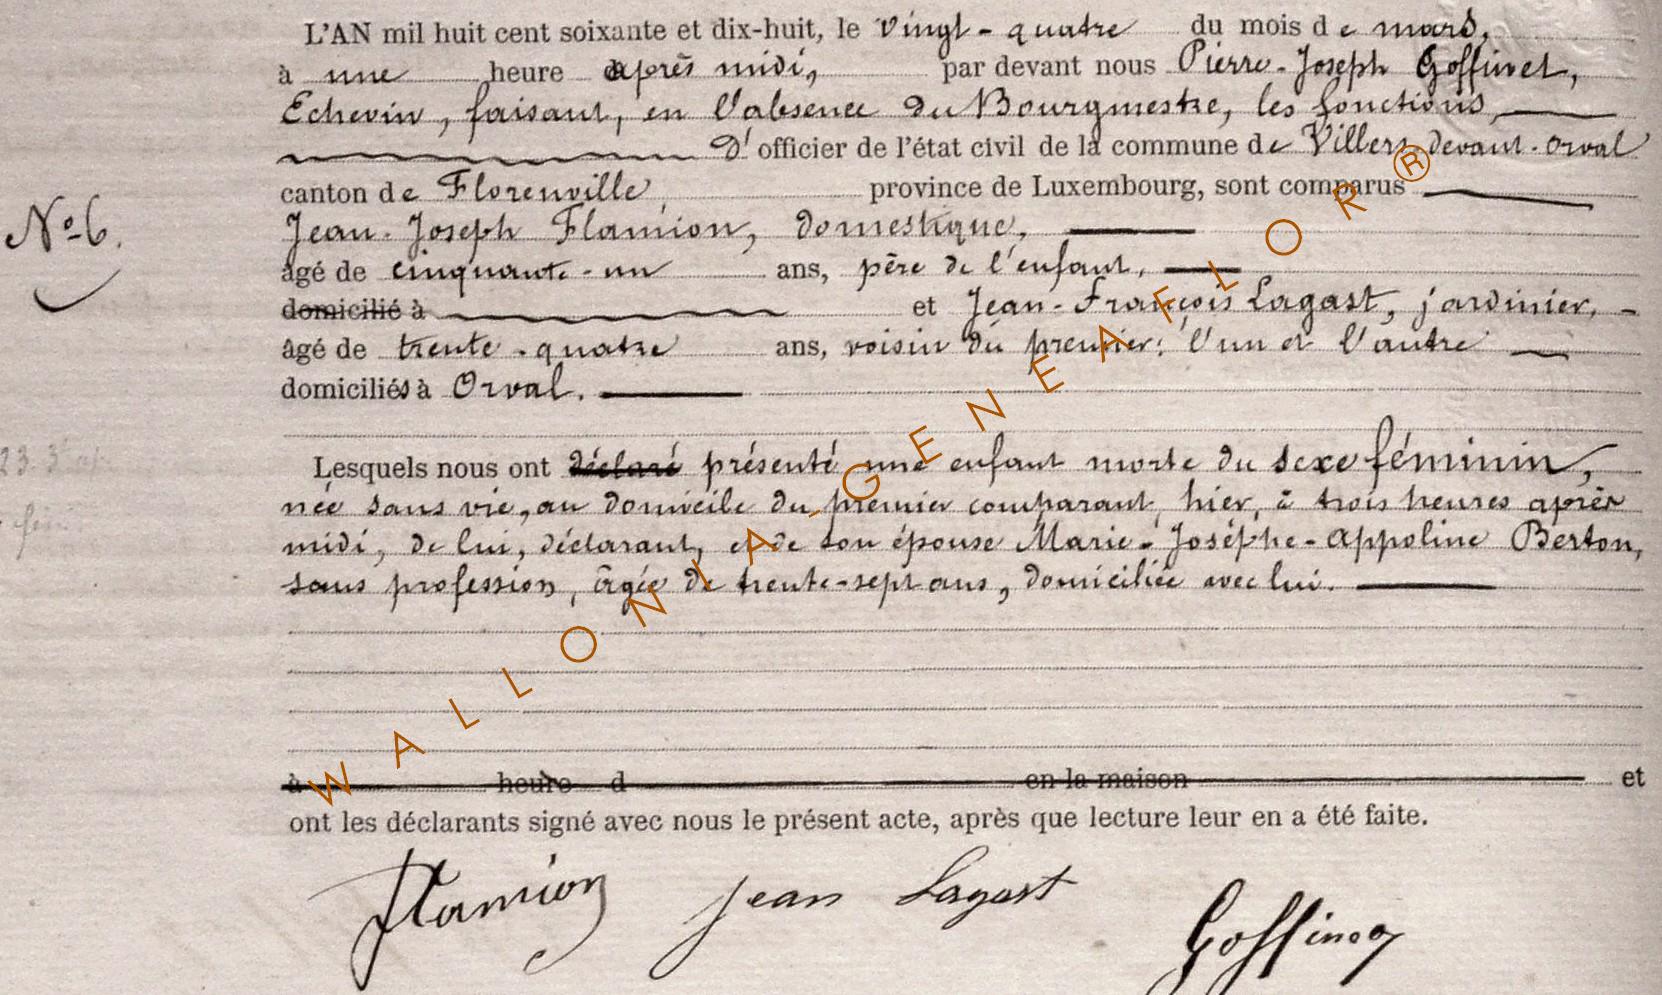 L'AN mil huit cent soixante et dix-huit, le vingt-quatre du mois de mars,
à une heure après midi, par devant nous Pierre-Joseph Goffinet,
Echevin, faisant, en l'absence du Bourgmestre, les fonctions
D'officier de l'état civil de la commune de Villers-devant-Orval
canton de Florenville, province de Luxembourg, sont comparus
N° 6.
Jean-Joseph Flamion, domestique,
âgé de cinquante-un ans, père de l'enfant,
domicilié à et Jean-François Lagast, jardinier,
âgé de trente-quatre ans, voisin du premier; l'un et l'autre
domiciliés à Orval.
Lesquels nous ont déclaré présenté une enfant morte du sexe féminin,
née sans vie, au domicile du premier comparant, hier, à trois heures après
midi, de lui, déclarant, et de son épouse Marie-Joséphe-Appoline Berton,
sans profession, âgée de trente-sept ans, domiciliée avec lui.
à heure d en la maison et
ont les déclarants signé avec nous le présent acte, après que lecture leur en a été faite.
Flamion Jean Lagast Goffinet
WALLONIA-GENEAFLOR®